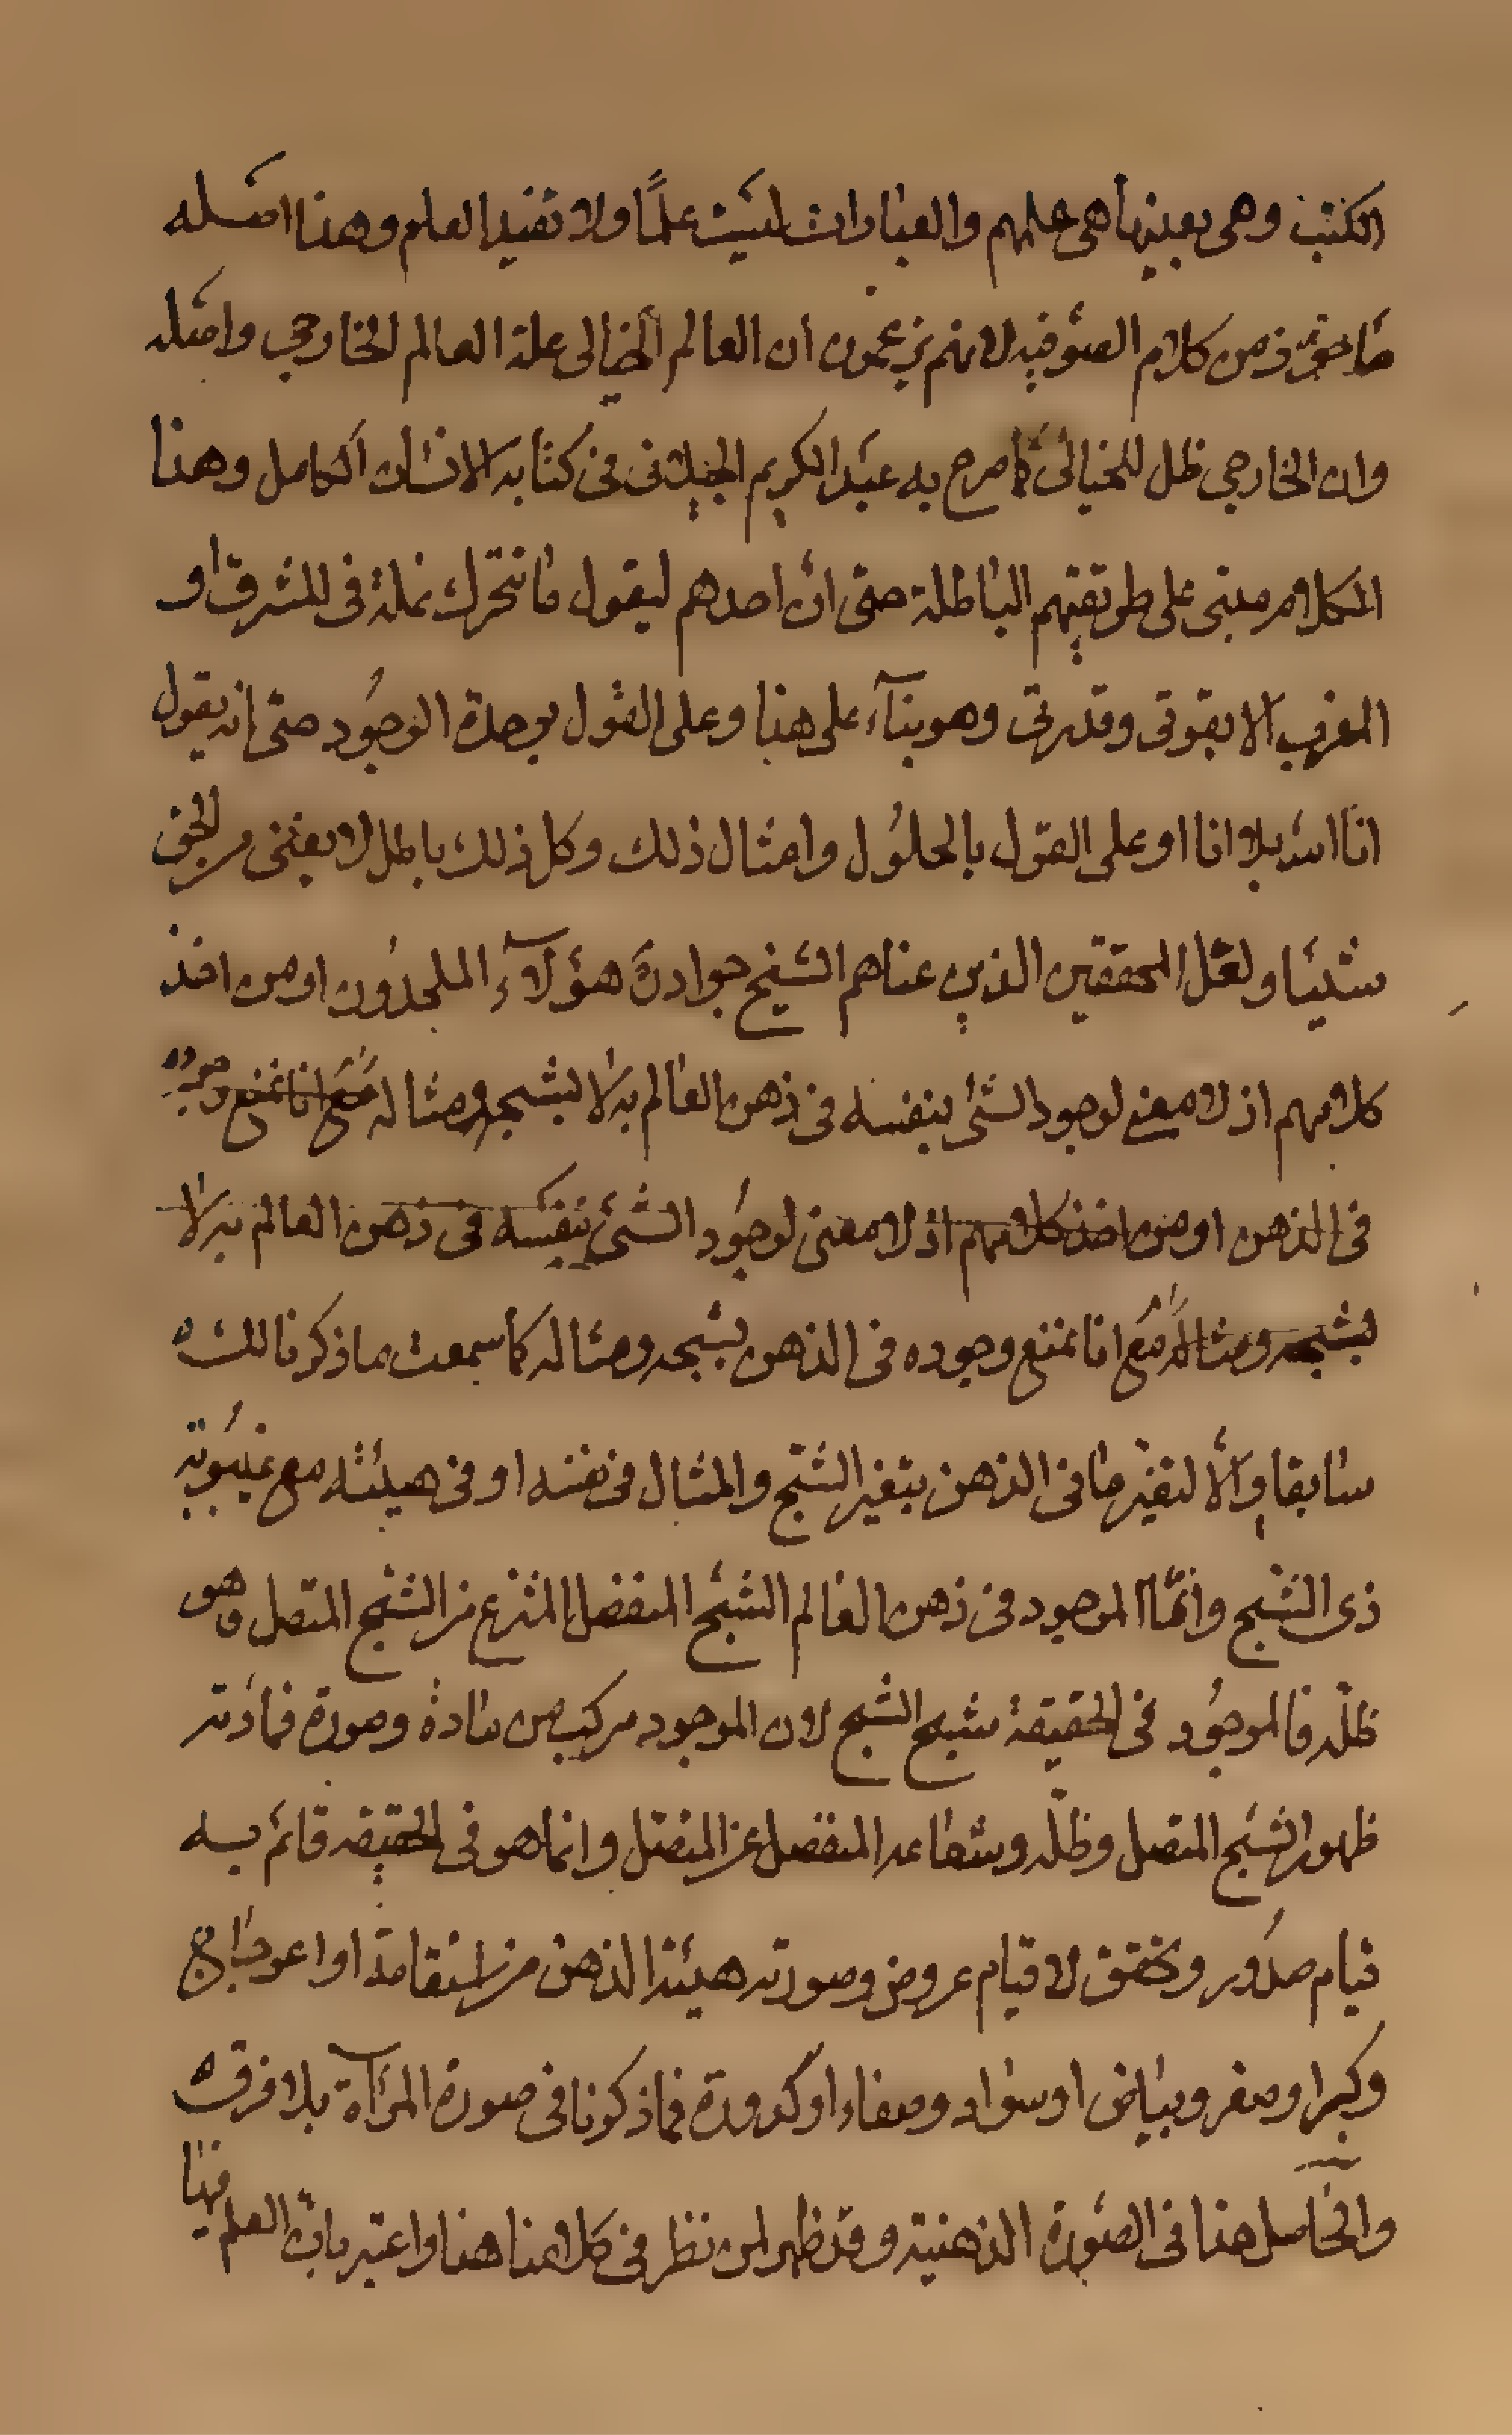 الكتب وهى بعينها هى علمهم والعبارات ليست علمًا ولا تفيد العلم وهذا اصله
مأخوذ من كلام الصوفيه لانهم يزعمون ان العالم الخيالى علة العالم الخارجي واصله
وان الخارجي ظل للخيالى كما صرح به عبد الكريم الجيلانى فى كتابه الانسان الكامل وهذا
الكلام مبنى على طريقتهم الباطلة حتى انّ احدهم ليقول ما تتحرك نملة فى المشرق او
المغرب الا بقوتى وقدرتى وهو بنآء على هذا وعلى القول بوحدة الوجود حتى انه يقول
انا الله بلا انا او على القول بالحلول وامثال ذلك وكل ذلك باطل لا يغنى من الحق
شيئا ولعل المحققين الذين عناهم الشيخ جواد هؤلآء الملحدون او من اخذ
كلامهم اذ لا معنى لوجود الشئ بنفسه فى ذهن العالم به لا بشبحه ومثاله مع انا نمنع وجوده
فى الذهن او من اخذ كلامهم اذ لا معنى لوجود الشئ بنفسه فى ذهن العالم به لا
بشبحه ومثاله مع انا نمنع وجوده فى الذهن بشبحه ومثاله كما سمعت ما ذكرنا لك
سابقا والّا لتغيّر ما فى الذهن بتغير الشبح والمثال فى نفسه او فى هيئته مع غيبوبة
ذى الشبح وانّما الموجود فى ذهن العالم الشبح المنفصل المنتزع من الشبح المتصل وهو
ظلّه فالموجود فى الحقيقة شبح الشبح لان الموجود مركب من مادة وصورة فمادّته
ظهور الشبح المتصل وظلّه وشعاعه المنفصل عن المتصل وانما هو فى الحقيقه قائم به
قيام صدور وتحقق لا قيام عروض وصورته هيئة الذهن من استقامة او اعوجاج
وكبر او صغر وبياض او سواد وصفاء او كدورة فما ذكرنا فى صورة المرآة بلا فرق
والحاصل هذا فى الصورة الذهنية وقد ظهر لمن نظر فى كلامنا هذا واعتبر بان العلم فيها